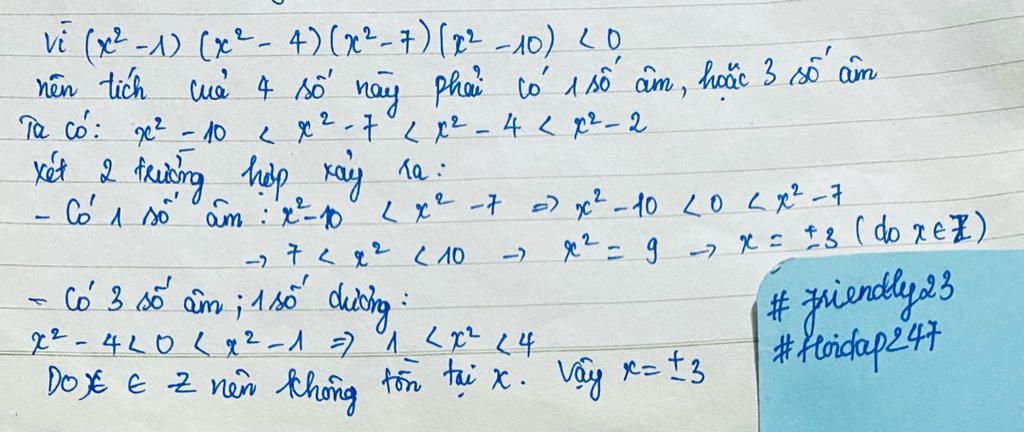 Vì (x² - 1) (x² - 4) (x² - 7) (x² - 10) < 0
nên tích của 4 số này phải có 1 số âm, hoặc 3 số âm
Ta có: x² - 10 < x² - 7 < x² - 4 < x² - 2
Xét 2 trường hợp xảy ra:
- Có 1 số âm : x² - 10 < x² - 7 ⇒ x² - 10 < 0 < x² - 7
→ 7 < x² < 10 → x² = 9 → x = ±3 (do x ∈ Z)
- Có 3 số âm ; 1 số dương :
x² - 4 < 0 < x² - 1 ⇒ 1 < x² < 4
Do x ∈ Z nên không tồn tại x. Vậy x = ±3
# friendly23
# hoidap247